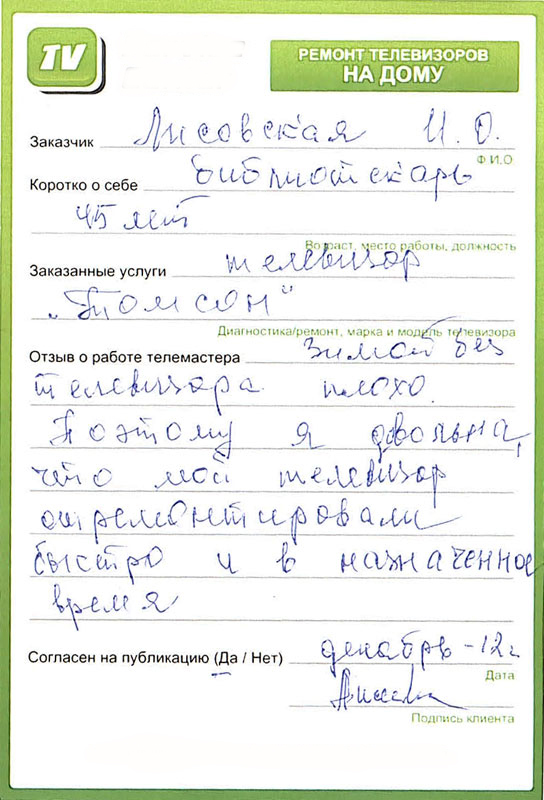 TV
РЕМОНТ ТЕЛЕВИЗОРОВ
НА ДОМУ
Заказчик Лисовская И. О.
Ф.И.О
Коротко о себе библиотекарь
45 лет
Возраст, место работы, должность
Заказанные услуги телевизор
„Томсон"
Диагностика/ремонт, марка и модель телевизора
Отзыв о работе телемастера Зимой без
телевизора плохо.
Поэтому я довольна,
что мой телевизор
отремонтировали
быстро и в назначенное
время
Согласен на публикацию (Да / Нет) декабрь - 12г
Дата
Подпись клиента